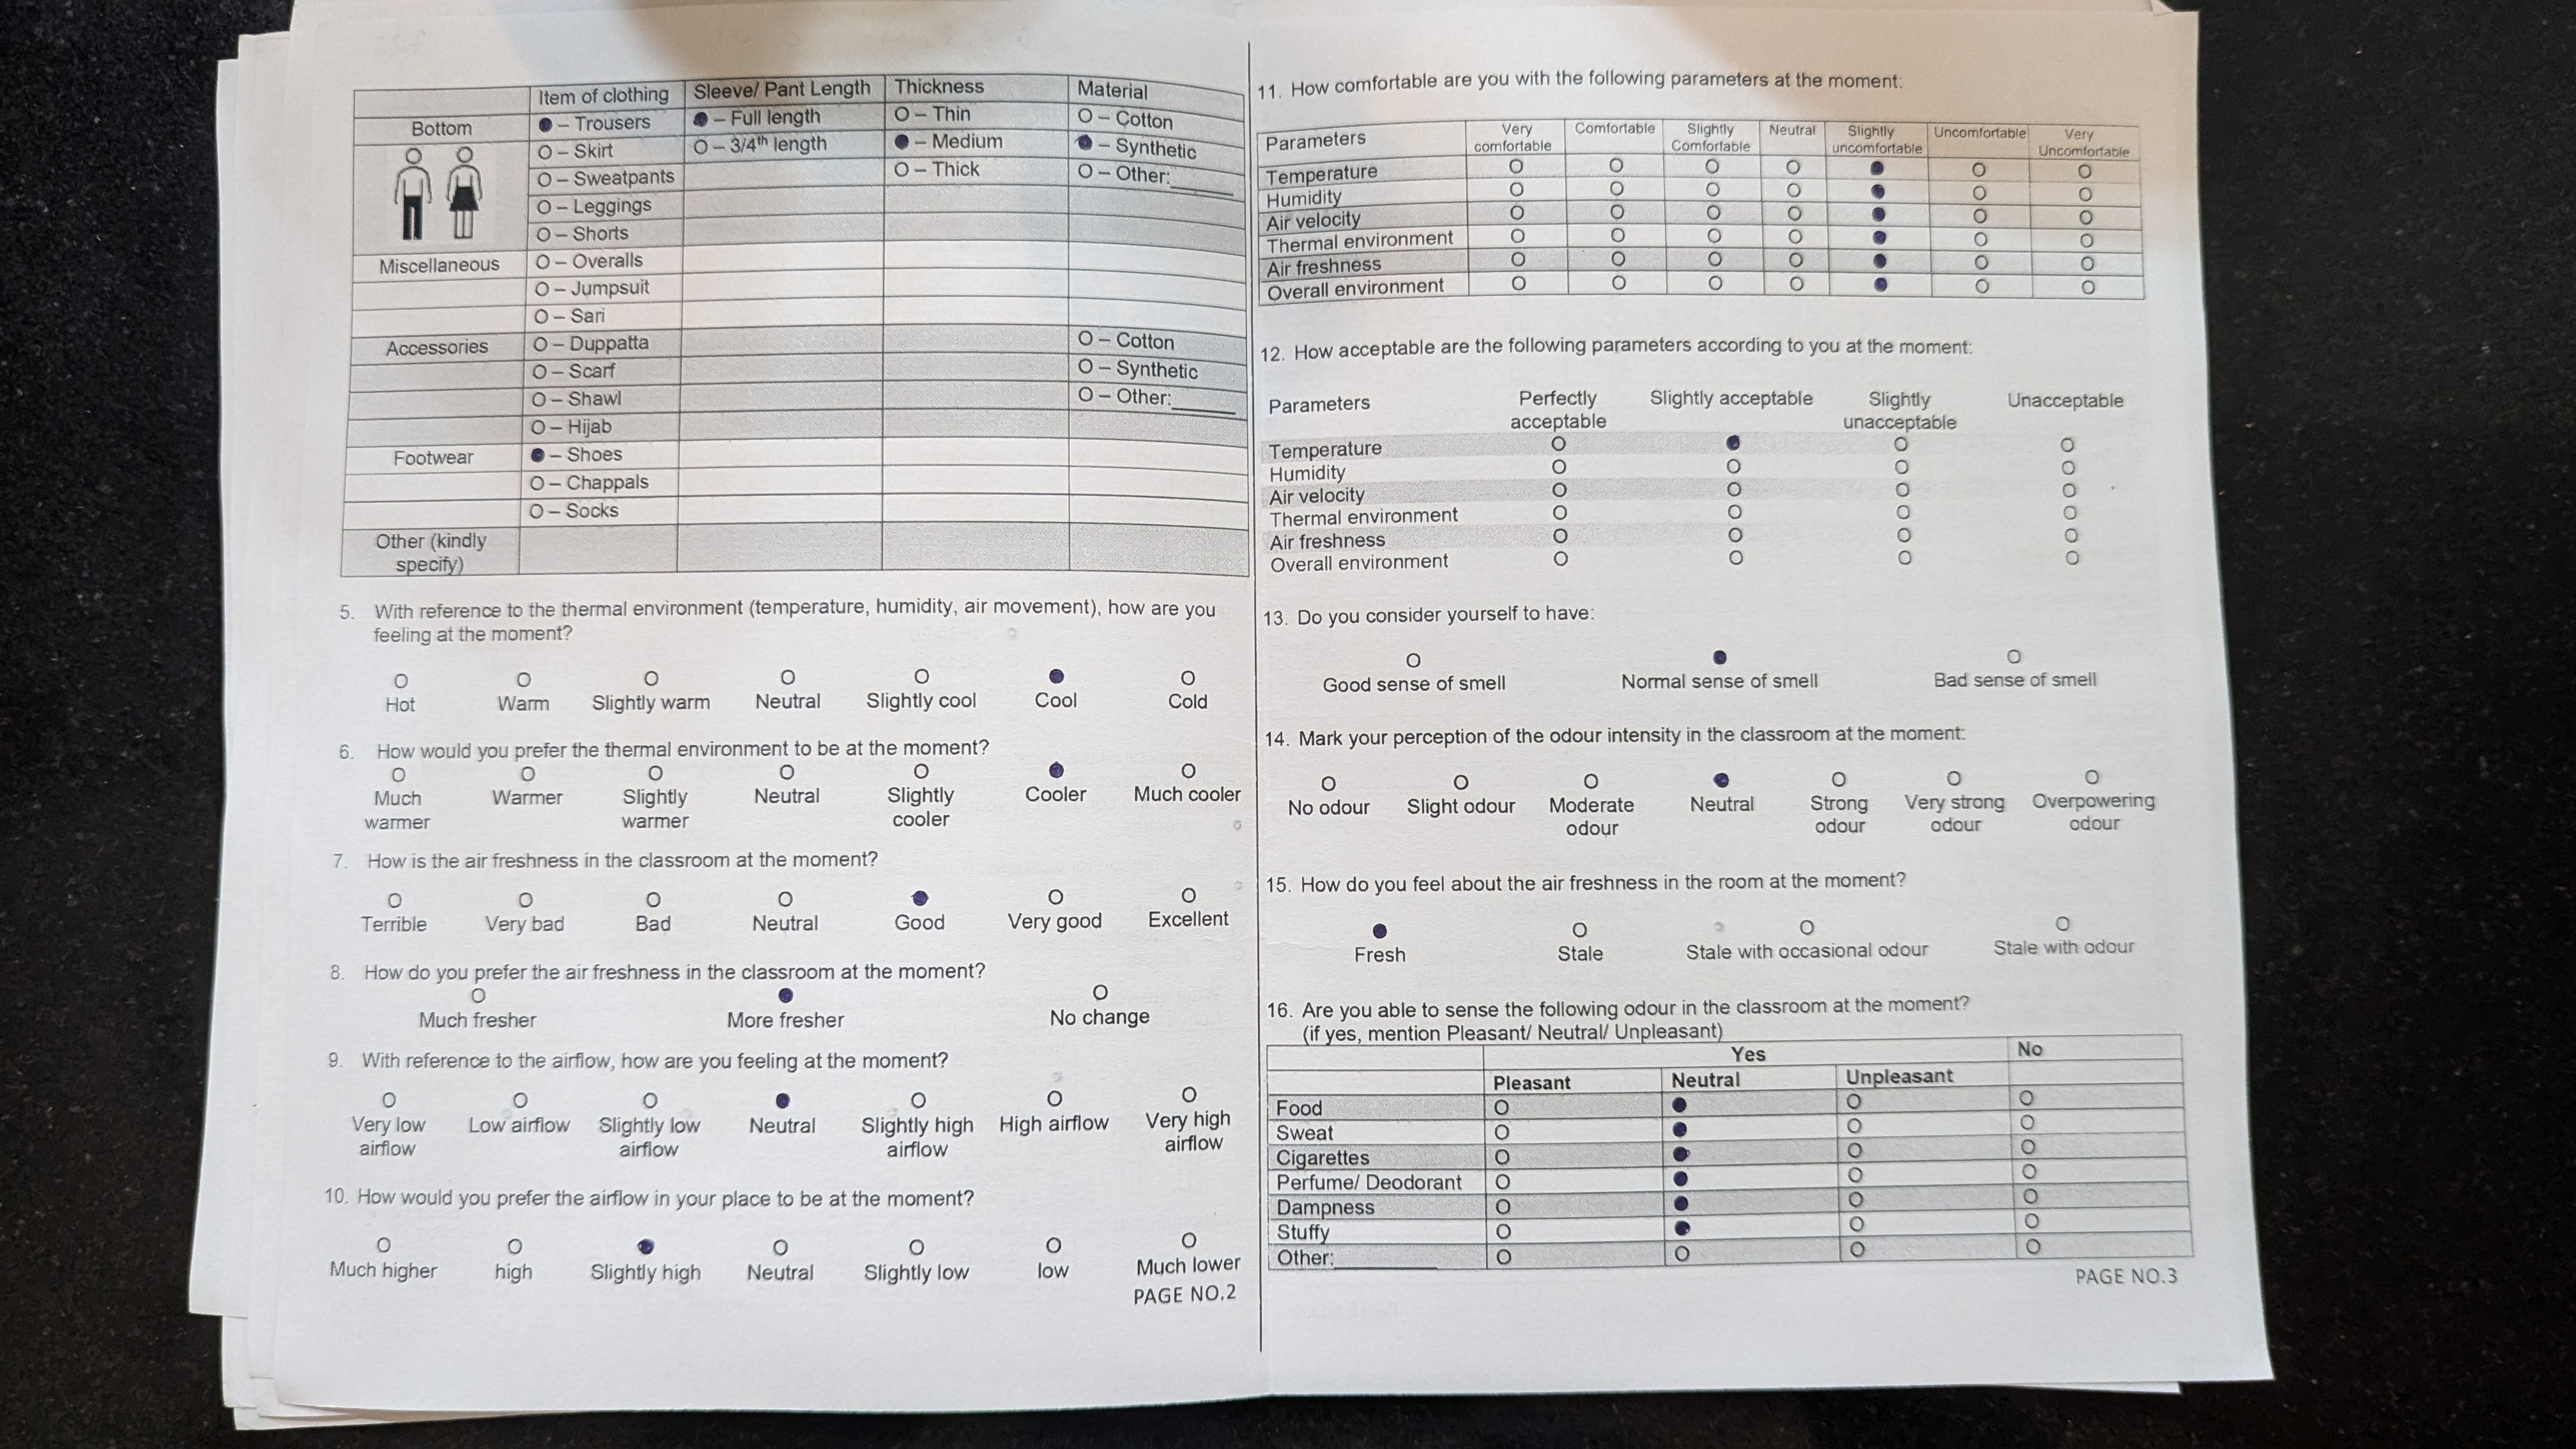 Item of clothing Sleeve/ Pant Length Thickness Material
Bottom ● – Trousers ● – Full length O – Thin O – Cotton
O – Skirt O – 3/4th length ● – Medium ● – Synthetic
O – Sweatpants O – Thick O – Other:______
O – Leggings
O – Shorts
Miscellaneous O – Overalls
O – Jumpsuit
O – Sari
Accessories O – Duppatta O – Cotton
O – Scarf O – Synthetic
O – Shawl O – Other:______
O – Hijab
Footwear ● – Shoes
O – Chappals
O – Socks
Other (kindly
specify)
5. With reference to the thermal environment (temperature, humidity, air movement), how are you
feeling at the moment?
O O O O O ● O
Hot Warm Slightly warm Neutral Slightly cool Cool Cold
6. How would you prefer the thermal environment to be at the moment?
O O O O O ● O
Much Warmer Slightly Neutral Slightly Cooler Much cooler
warmer warmer cooler
7. How is the air freshness in the classroom at the moment?
O O O O ● O O
Terrible Very bad Bad Neutral Good Very good Excellent
8. How do you prefer the air freshness in the classroom at the moment?
O ● O
Much fresher More fresher No change
9. With reference to the airflow, how are you feeling at the moment?
O O O ● O O O
Very low Low airflow Slightly low Neutral Slightly high High airflow Very high
airflow airflow airflow airflow
10. How would you prefer the airflow in your place to be at the moment?
O O ● O O O O
Much higher high Slightly high Neutral Slightly low low Much lower
PAGE NO.2
11. How comfortable are you with the following parameters at the moment:
Parameters Very Comfortable Slightly Neutral Slightly Uncomfortable Very
comfortable Comfortable uncomfortable Uncomfortable
Temperature O O O O ● O O
Humidity O O O O ● O O
Air velocity O O O O ● O O
Thermal environment O O O O ● O O
Air freshness O O O O ● O O
Overall environment O O O O ● O O
12. How acceptable are the following parameters according to you at the moment:
Parameters Perfectly Slightly acceptable Slightly Unacceptable
acceptable unacceptable
Temperature O ● O O
Humidity O O O O
Air velocity O O O O
Thermal environment O O O O
Air freshness O O O O
Overall environment O O O O
13. Do you consider yourself to have:
O ● O
Good sense of smell Normal sense of smell Bad sense of smell
14. Mark your perception of the odour intensity in the classroom at the moment:
O O O ● O O O
No odour Slight odour Moderate Neutral Strong Very strong Overpowering
odour odour odour odour
15. How do you feel about the air freshness in the room at the moment?
● O O O
Fresh Stale Stale with occasional odour Stale with odour
16. Are you able to sense the following odour in the classroom at the moment?
(if yes, mention Pleasant/ Neutral/ Unpleasant)
Yes No
Pleasant Neutral Unpleasant
Food O ● O O
Sweat O ● O O
Cigarettes O ● O O
Perfume/ Deodorant O ● O O
Dampness O ● O O
Stuffy O ● O O
Other:__________ O O O O
PAGE NO.3